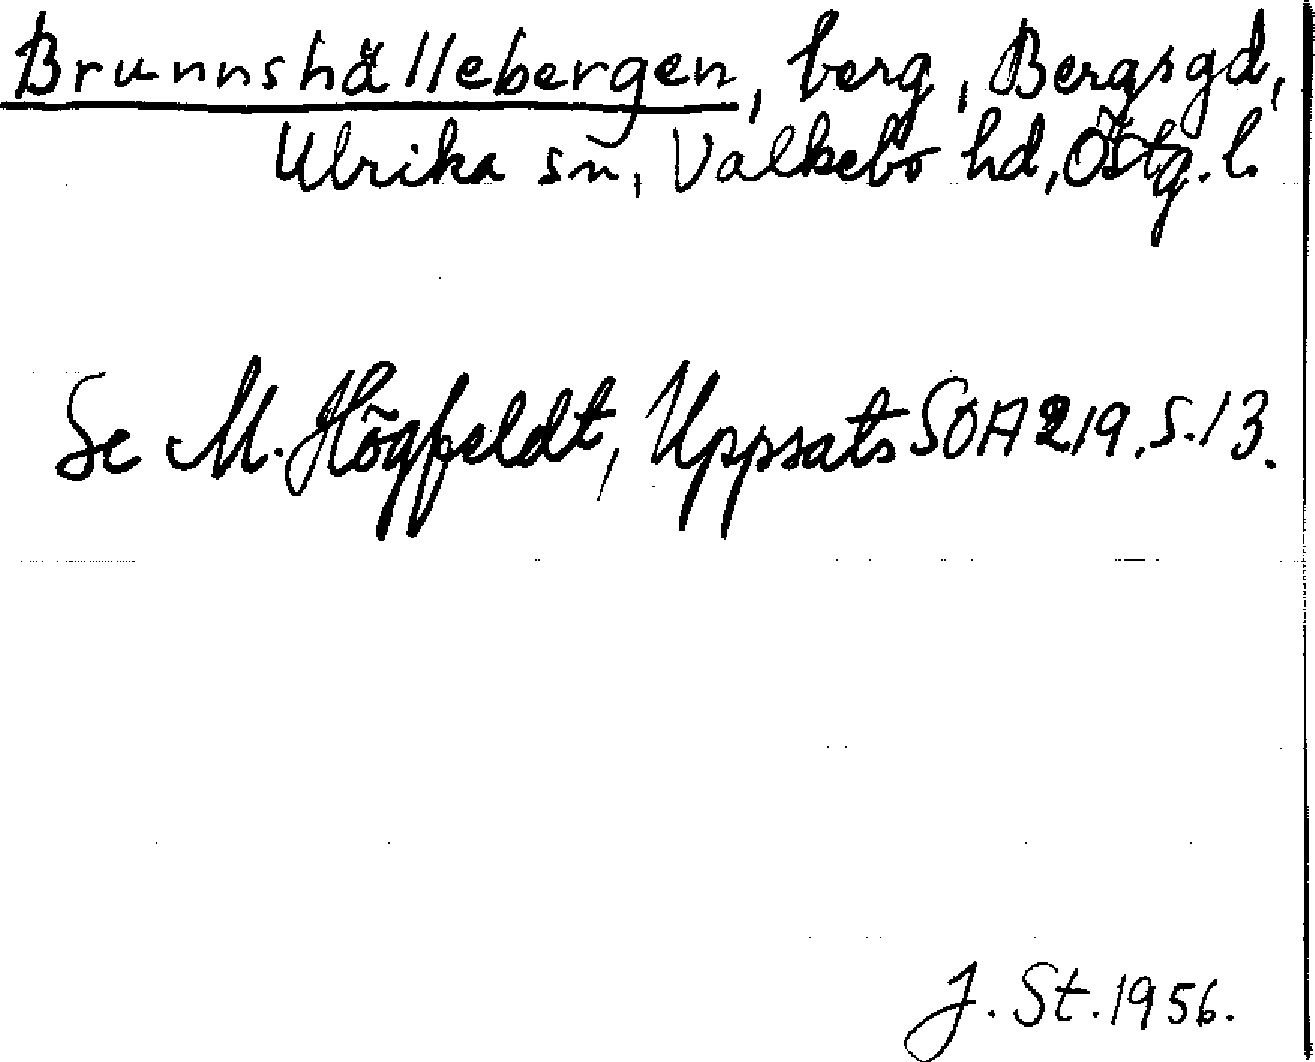 Brunnshällebergen, berg, Bergsgd,
Ulrika sn, Valkebo hd, Östg. l.
Se M. Högfeldt, Uppsats SOA 219. s. 13.
J. St. 1956.